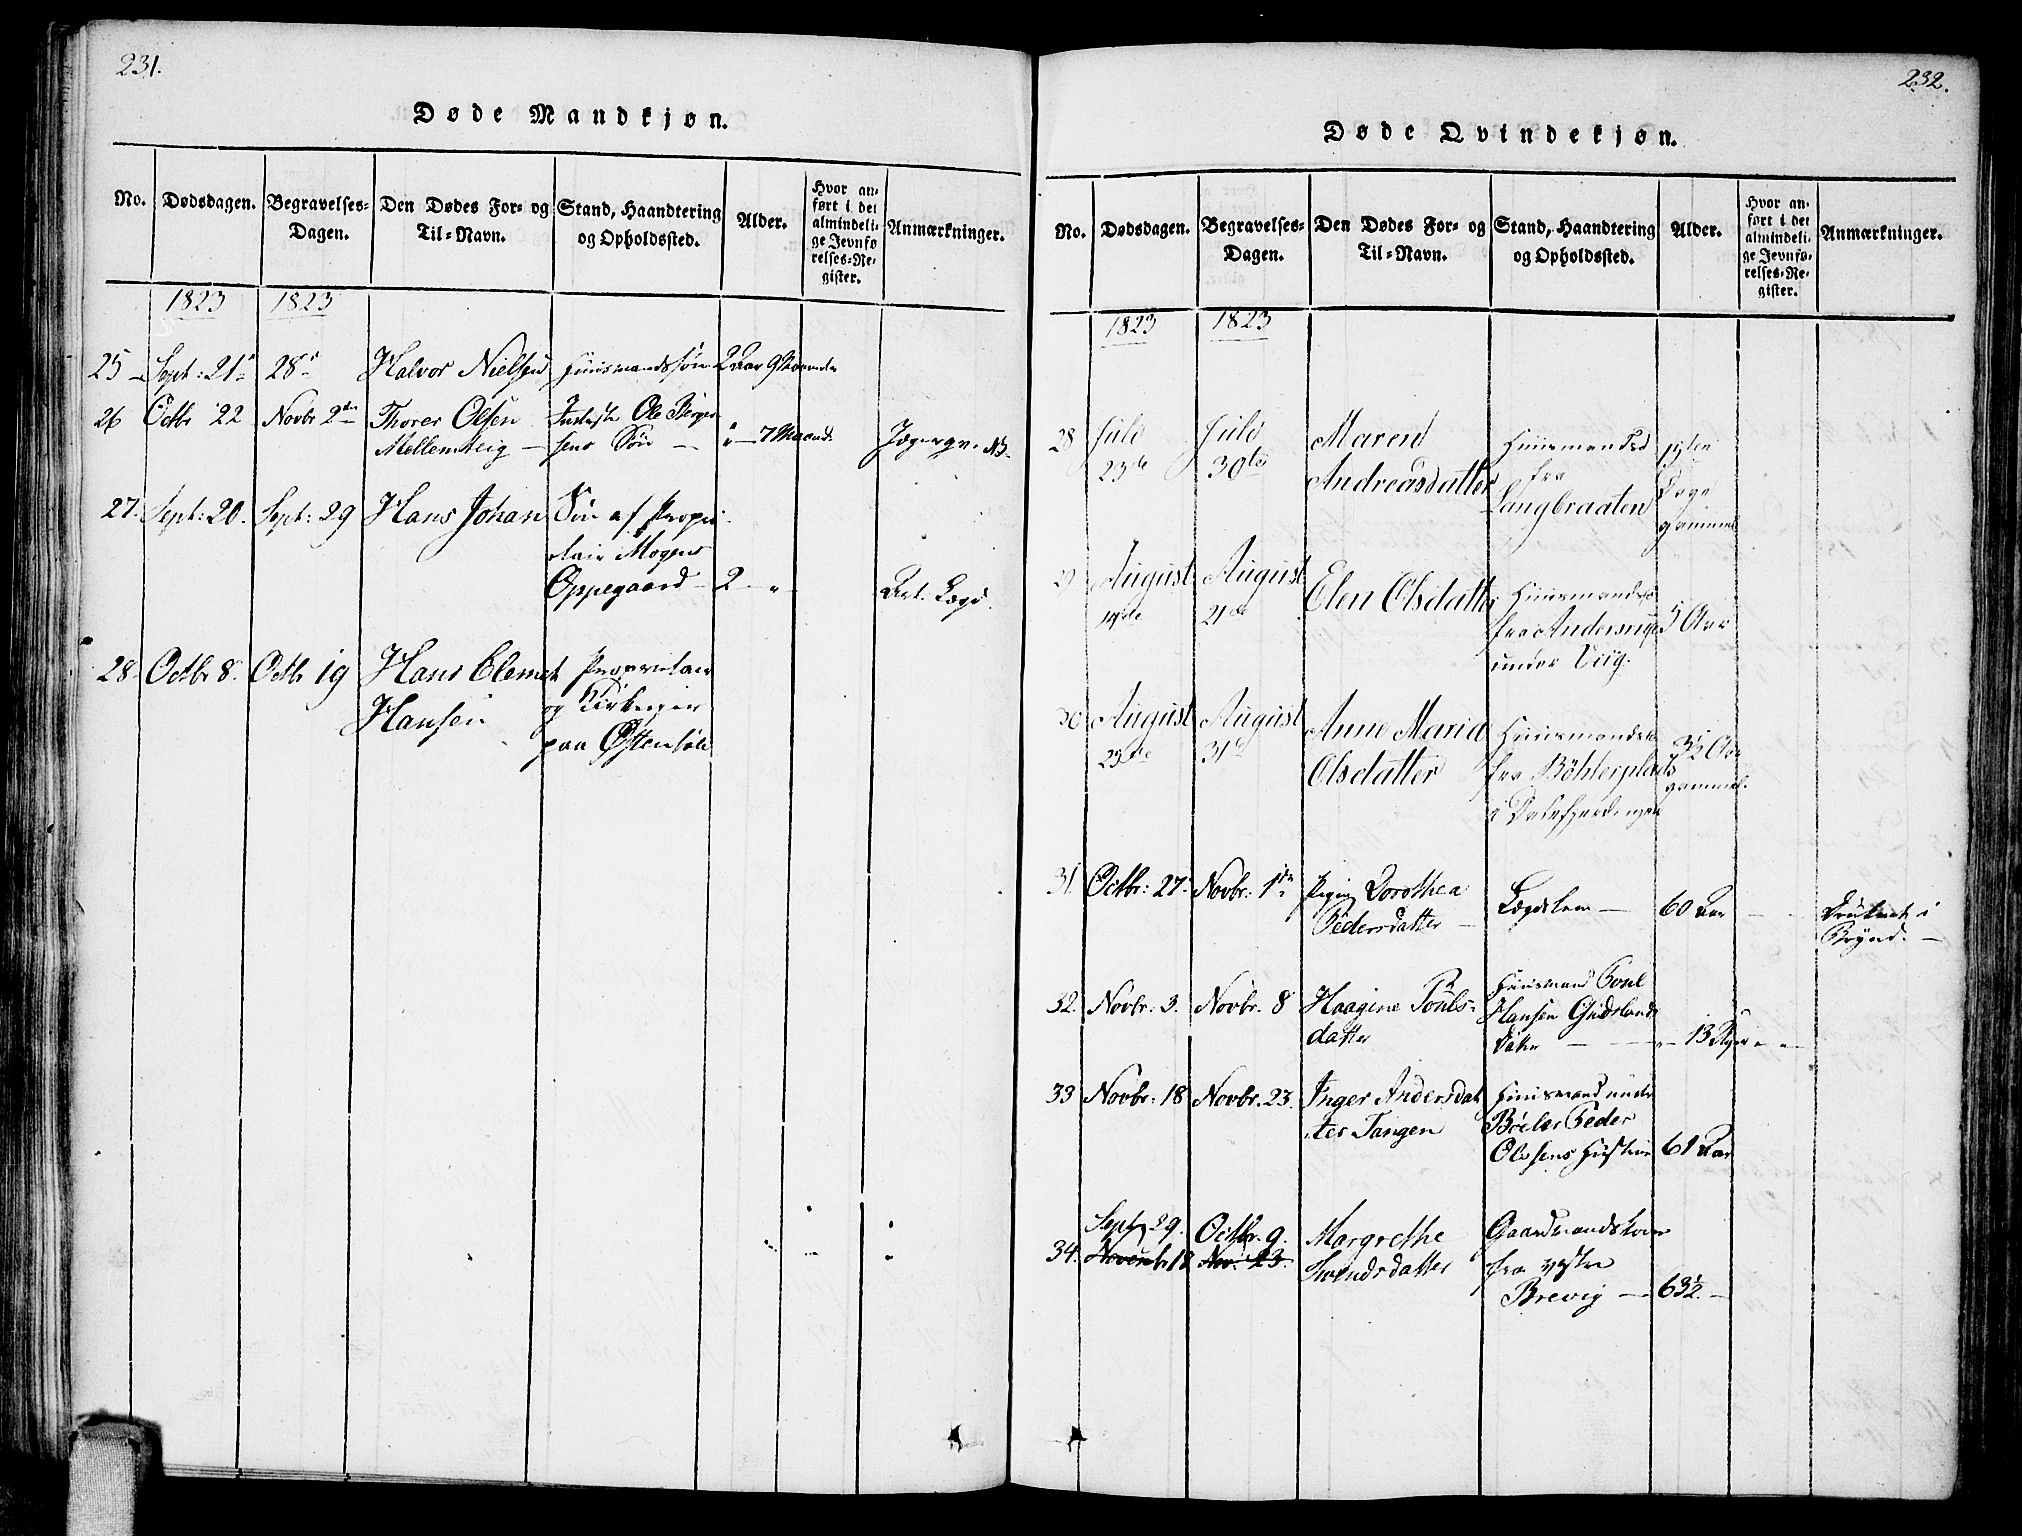 231.
Døde Mandkjøn.
No. Dødsdagen. Begravelses-Dagen. Den Dødes For- og Til-Navn. Stand, Haandtering og Opholdssted. Alder. Hvor anført i det almindelige Jevnførelses-Register. Anmærkninger.
1823 1823
25 Sept: 21 28 Halvor Nielsen Huusmandssøn 2 Aar 9 Maaneder
26 Octbr 22 Novbr 2den Thorer Olsen Inderste Ole Berger
Mellemteig sens Søn 7 Maand.
27. Sept: 20. Sept: 29 Hans Johan Søn af Propri
tair Mogens
Oppegaard 2
28. Octbr 8. Octbr 19 Hans Clemet Proprietair
Hansen og Kirkeeier
paa Østensøe
232.
Døde Qvindekjøn.
No. Dødsdagen. Begravelses-Dagen. Den Dødes For- og Til-Navn. Stand, Haandtering og Opholdssted. Alder. Hvor anført i det almindelige Jevnførelses-Register. Anmærkninger.
1823 1823
28 Juli Juli Maren Huusmandsd
23de 30te Andreasdatter fra Dage
Langbraaten gammel
29 August August Elen Olsdatter Huusmandsd
21de fra Andersrige 5 Aar
under Viig.
30 August August Anne Maria Huusmandsd
23de 31te Olsdatter fra Böhlerplads 3½ Aar
i Dalefjerdingen gammel.
31. Octbr: 27. Novbr: 1ste Pigen Dorothea Lægdslem 60 Aar Druknet i
Pedersdatter Brynd.
32. Novbr: 3. Novbr. 8 Haagine Pouls- Huusmand Poul
datter Hansen
Datter 13 Uger
33 Novbr: 18 Novbr. 23. Inger Andersdat Huusmand under
ter Tangen Bøeler Peder
Olsens Hustrue 61 Aar
Sept 29. Octbr. 9. Margrethe Gaardmandskone
34. Novemb 18 Nov: 23. Svendsdatter fra vestre
Brevig 63½